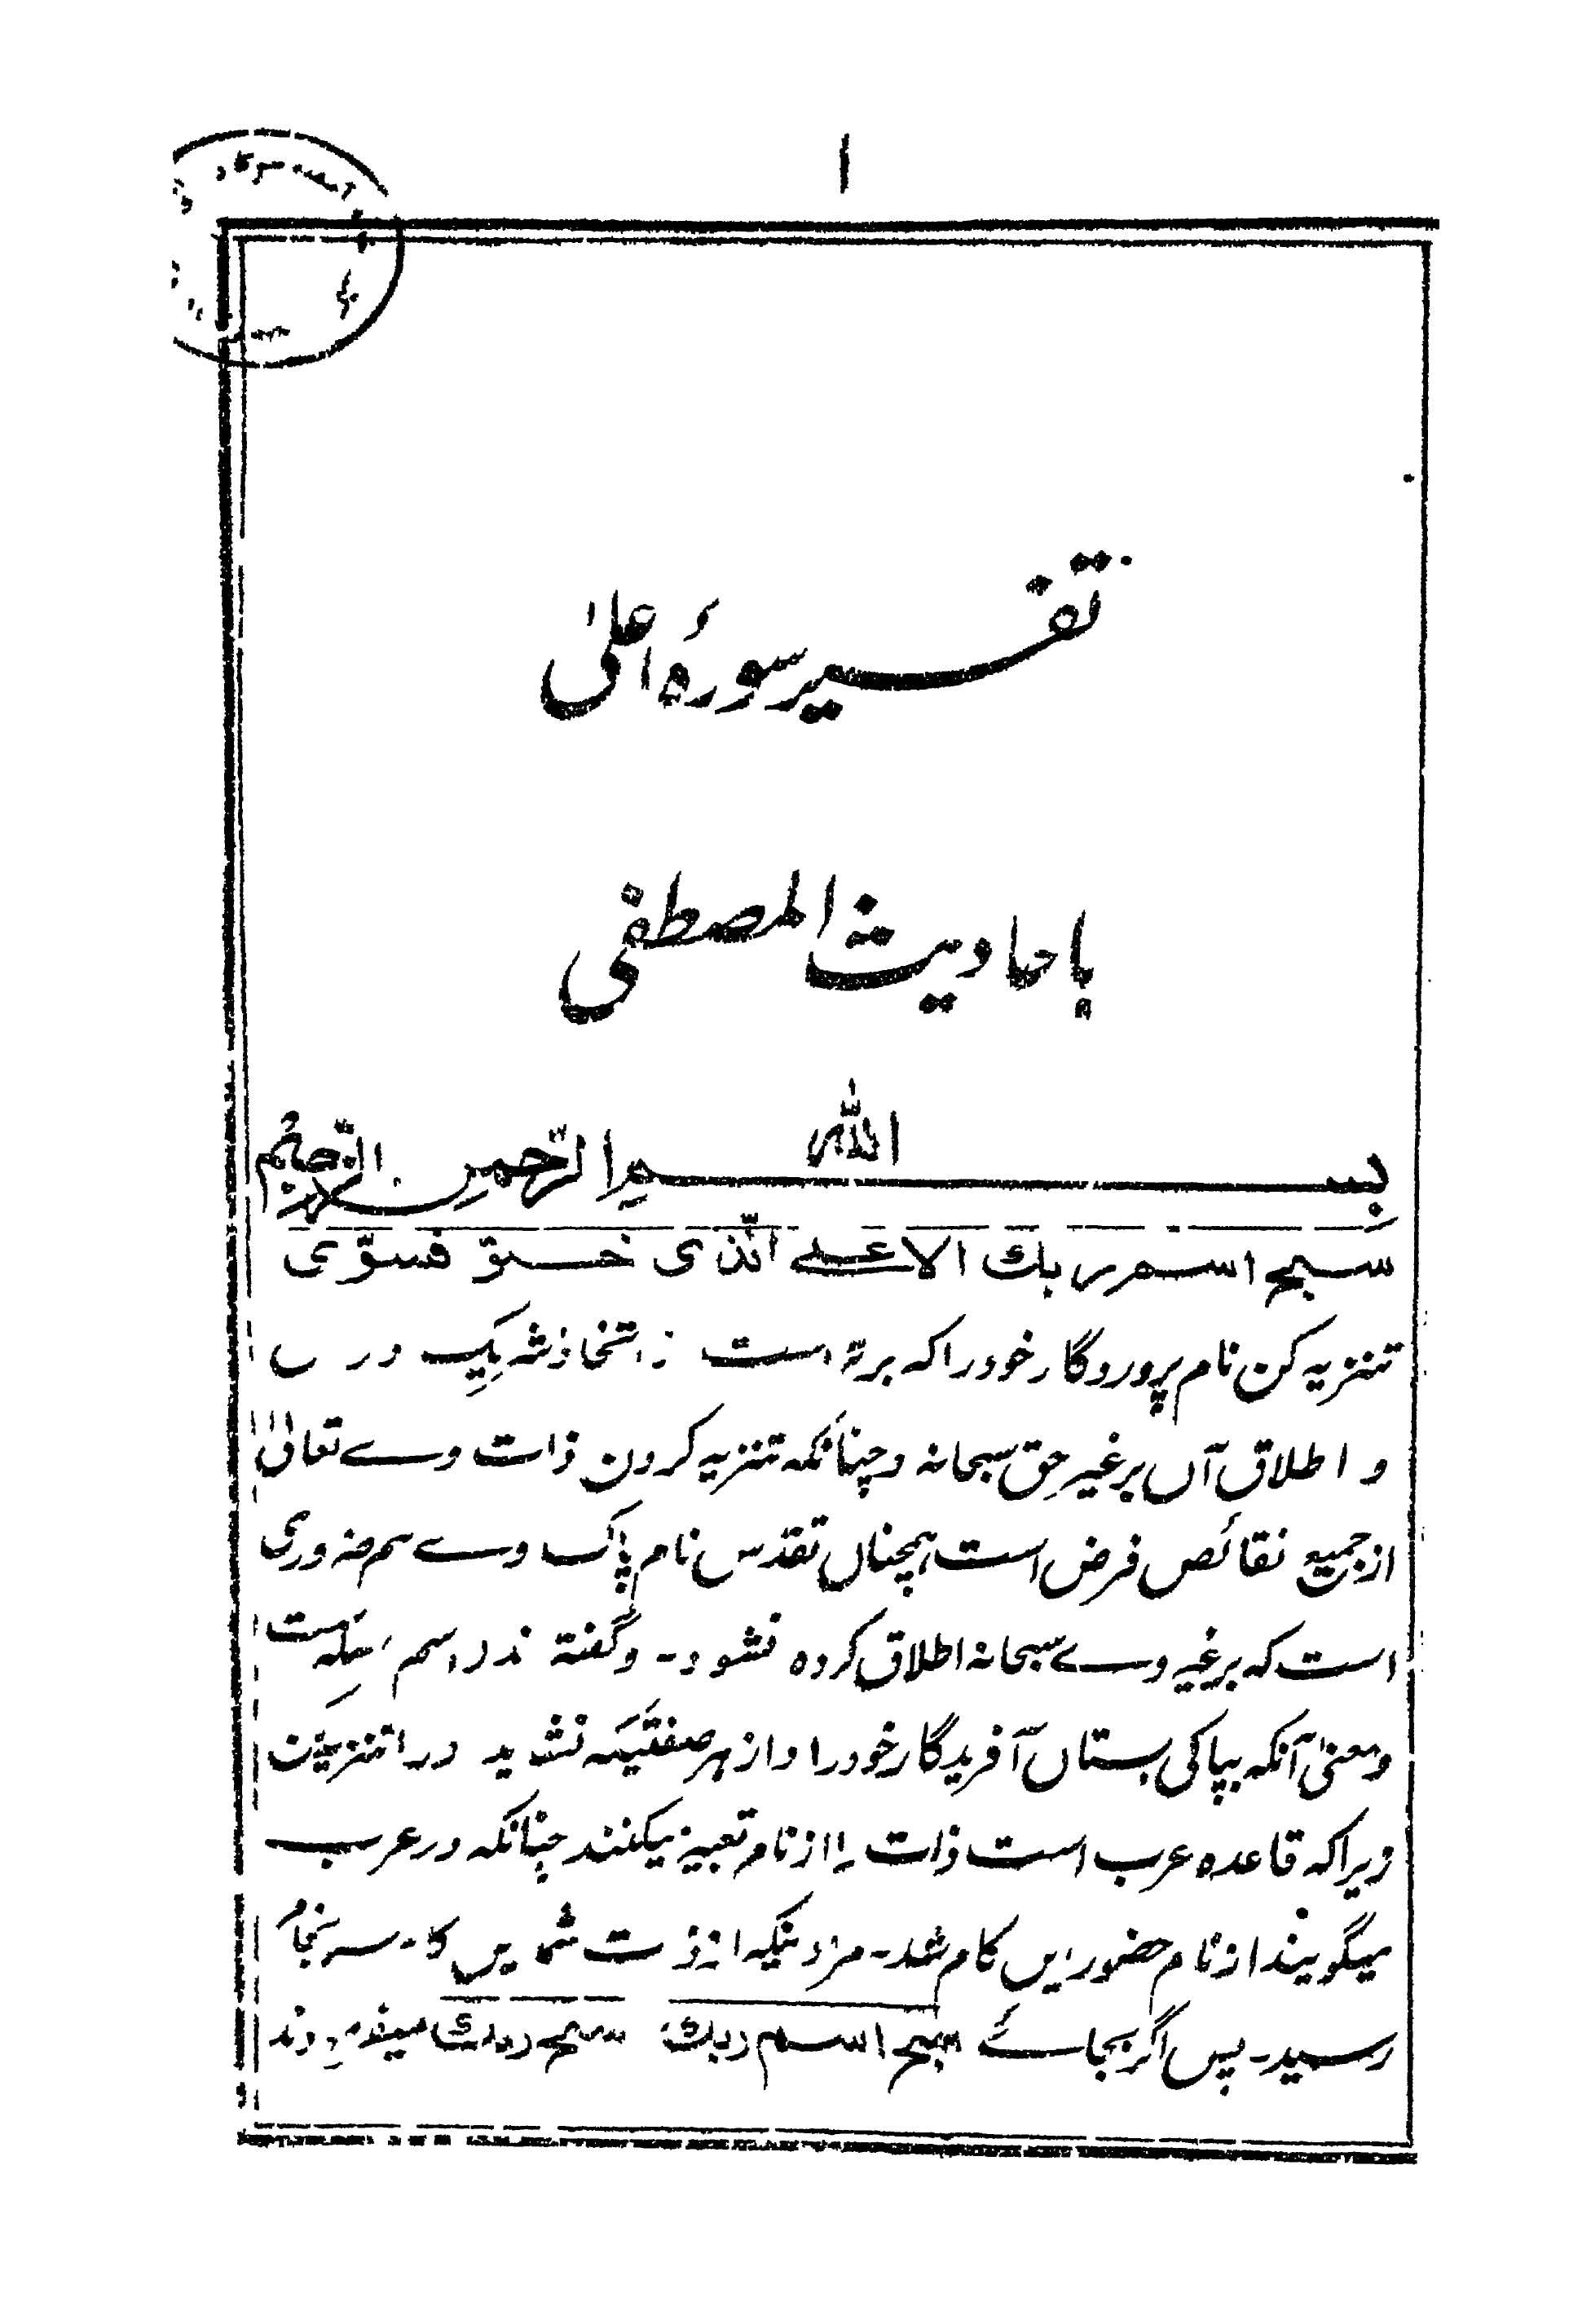 ۱
تفسیر سورۂ اعلیٰ
باحادیث المصطفی
بسم الله الرحمن الرحیم
سبح اسم ربك الاعلے الذی خلق فسوّی
تنزیہ کن نام پروردگار خود را کہ برتر است از اتخاذ شریک در
و اطلاق آں بر غیر حق سبحانہ و چنانکہ تنزیہ کردن ذات وے تعالیٰ
از جمیع نقائص فرض است ہمچناں تقدس نام پاک وے ہم ضروری
است کہ بر غیر وے سبحانہ اطلاق کردہ نشود۔ و گفتہ اند اسم صلہ است
و معنیٰ آنکہ بپاکی بستاں آفریدگار خود را و از ہر صفتیکہ
ویرا کہ قاعدہ عرب است ذات را از نام تعبیر میکنند چنانکہ در عرب
میگویند از نام حضور ایں کام شد۔ مراد اینکہ از ذات شما ایں کار سرانجام
رسید۔ پس اگر بجائے سبح اسم ربك سبح ربك میفرمودند